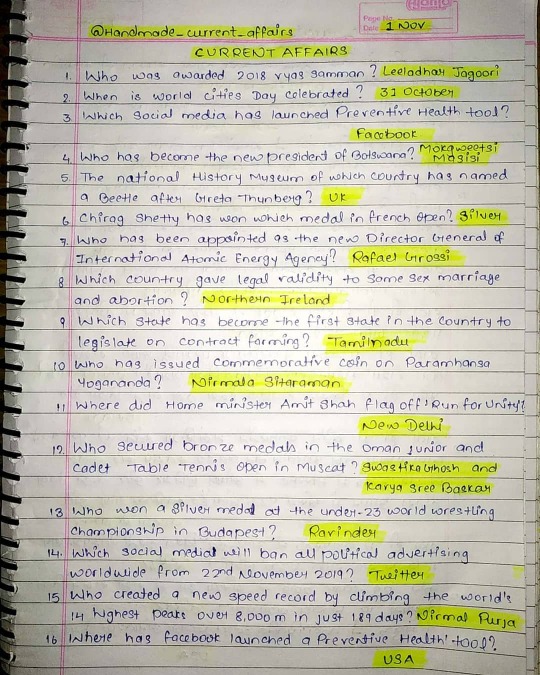 Page No.
Date 1 NOV
@Handmade_current_affairs
CURRENT AFFAIRS
1. Who was awarded 2018 vyas samman? Leeladhar Jagoori
2. When is world cities Day celebrated? 31 October
3 Which social media has launched Preventive Health tool?
Facebook
4. Who has become the new president of Botswana? Mokgweetsi
Masisi
5. The national History Museum of which country has named
a Beetle after Greta Thunberg? UK
6 Chirag Shetty has won which medal in french Open? Silver
7. Who has been appointed as the new Director General of
International Atomic Energy Agency? Rafael Grossi
8 Which country gave legal validity to Same Sex marriage
and abortion? Northern Ireland
9 Which state has become the first state in the country to
legislate on contract farming? Tamilnadu
10 Who has issued commemorative coin on Paramhansa
Yogananda? Nirmala Sitaraman
11 Where did Home minister Amit Shah flag off 'Run for Unity'?
New Delhi
12. Who secured bronze medals in the Oman junior and
Cadet Table Tennis Open in Muscat? Swastika Ghosh and
Kavya Sree Baskar
13 Who won a silver medal at the under-23 world wrestling
Championship in Budapest? Ravinder
14. Which social medial will ban all political advertising
worldwide from 22nd November 2019? Twitter
15 Who created a new speed record by climbing the world's
14 highest peaks over 8,000m in just 189 days? Nirmal Purja
16 Where has facebook launched a Preventive Health' tool?
USA